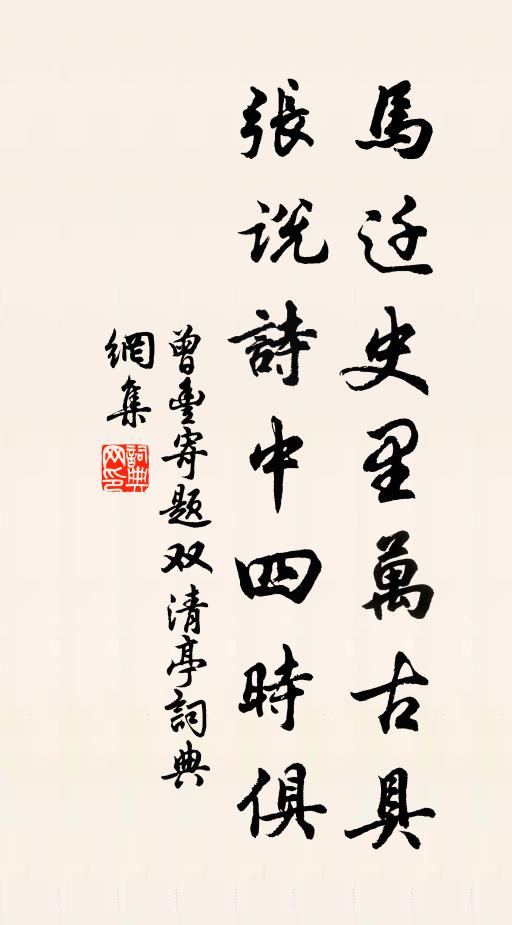 馬迁史里萬古具
張说詩中四時俱
曾豐寄题双清亭詞典
網集
詞典网印